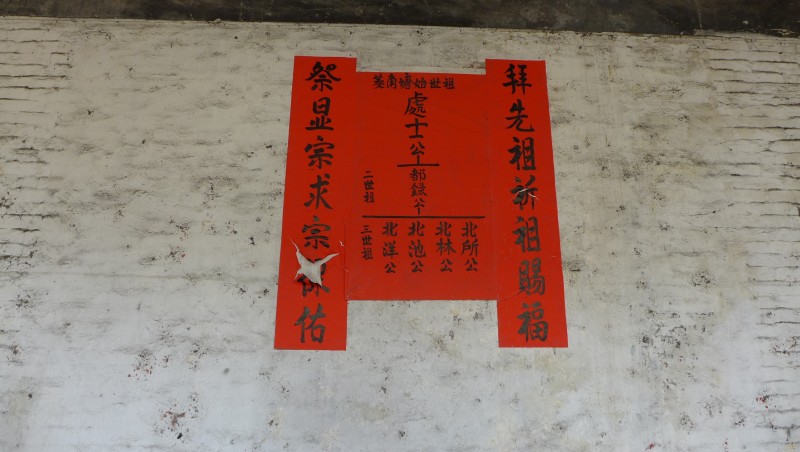 拜先祖祈祖賜福
南塘始世祖
處士公
二世祖
都錄公
三世祖
北所公
北林公
北池公
北洋公
祭显宗求宗保佑